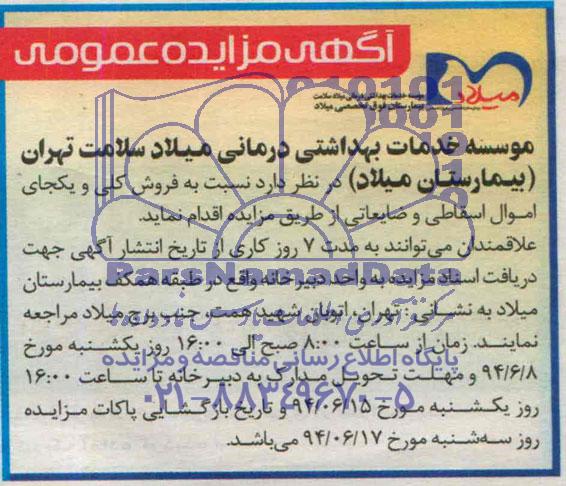 آگهی مزایده عمومی
میلاد
موسسه خدمات بهداشتی درمانی میلاد سلامت
بیمارستان فوق تخصصی میلاد
موسسه خدمات بهداشتی درمانی میلاد سلامت تهران
(بیمارستان میلاد) در نظر دارد نسبت به فروش کلی و یکجای
اموال اسقاطی و ضایعاتی از طریق مزایده اقدام نماید.
علاقمندان می‌توانند به مدت ۷ روز کاری از تاریخ انتشار آگهی جهت
دریافت اسناد مزایده به واحد دبیرخانه واقع در طبقه همکف بیمارستان
میلاد به نشانی: تهران، اتوبان شهید همت، جنب برج میلاد مراجعه
نمایند. زمان از ساعت ۸:۰۰ صبح الی ۱۶:۰۰ روز یکشنبه مورخ
۹۴/۶/۸ و مهلت تحویل مدارک به دبیرخانه تا ساعت ۱۶:۰۰
روز یکشنبه مورخ ۹۴/۰۶/۱۵ و تاریخ بازگشایی پاکات مزایده
روز سه‌شنبه مورخ ۹۴/۰۶/۱۷ می‌باشد.
ParsNamadData
پایگاه اطلاع رسانی مناقصه و مزایده
۰۲۱-۸۸۳۴۹۶۷۰-۵